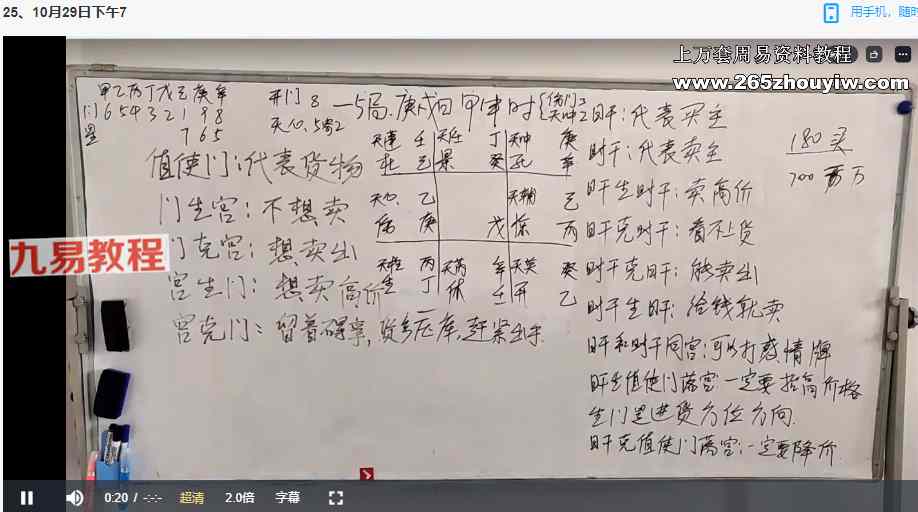 25、10月29日下午7
用手机，随时
上万套周易资料教程
www.265zhouyiw.com
甲乙丙丁戊己庚辛
门65432198
星 765
开门8
天心.5寄2
一5局.庚戌日 甲申时
值使门：代表货物
门生宫：不想卖
门克宫：想卖出
宫生门：想卖高价
宫克门：留着碍事,货多压库,赶紧出手
壬 天任 丁
杜 己 景 癸 死 辛
天心 乙 天辅 己
庚 戊 惊 丙
丙 辛 癸
生 丁 休 壬 开 乙
日干：代表买主
时干：代表卖主
日干生时干：卖高价
日干克时干：看不上货
时干克日干：能卖出
时干生日干：给钱就卖
日干和时干同宫：可以打感情牌
日干生值使门落宫：一定要抬高价格
生门是进货方位方向
日干克值使门落宫：一定要降价
180买
700万
九易教程
0:20 / -:-:-
超清
2.0倍
字幕